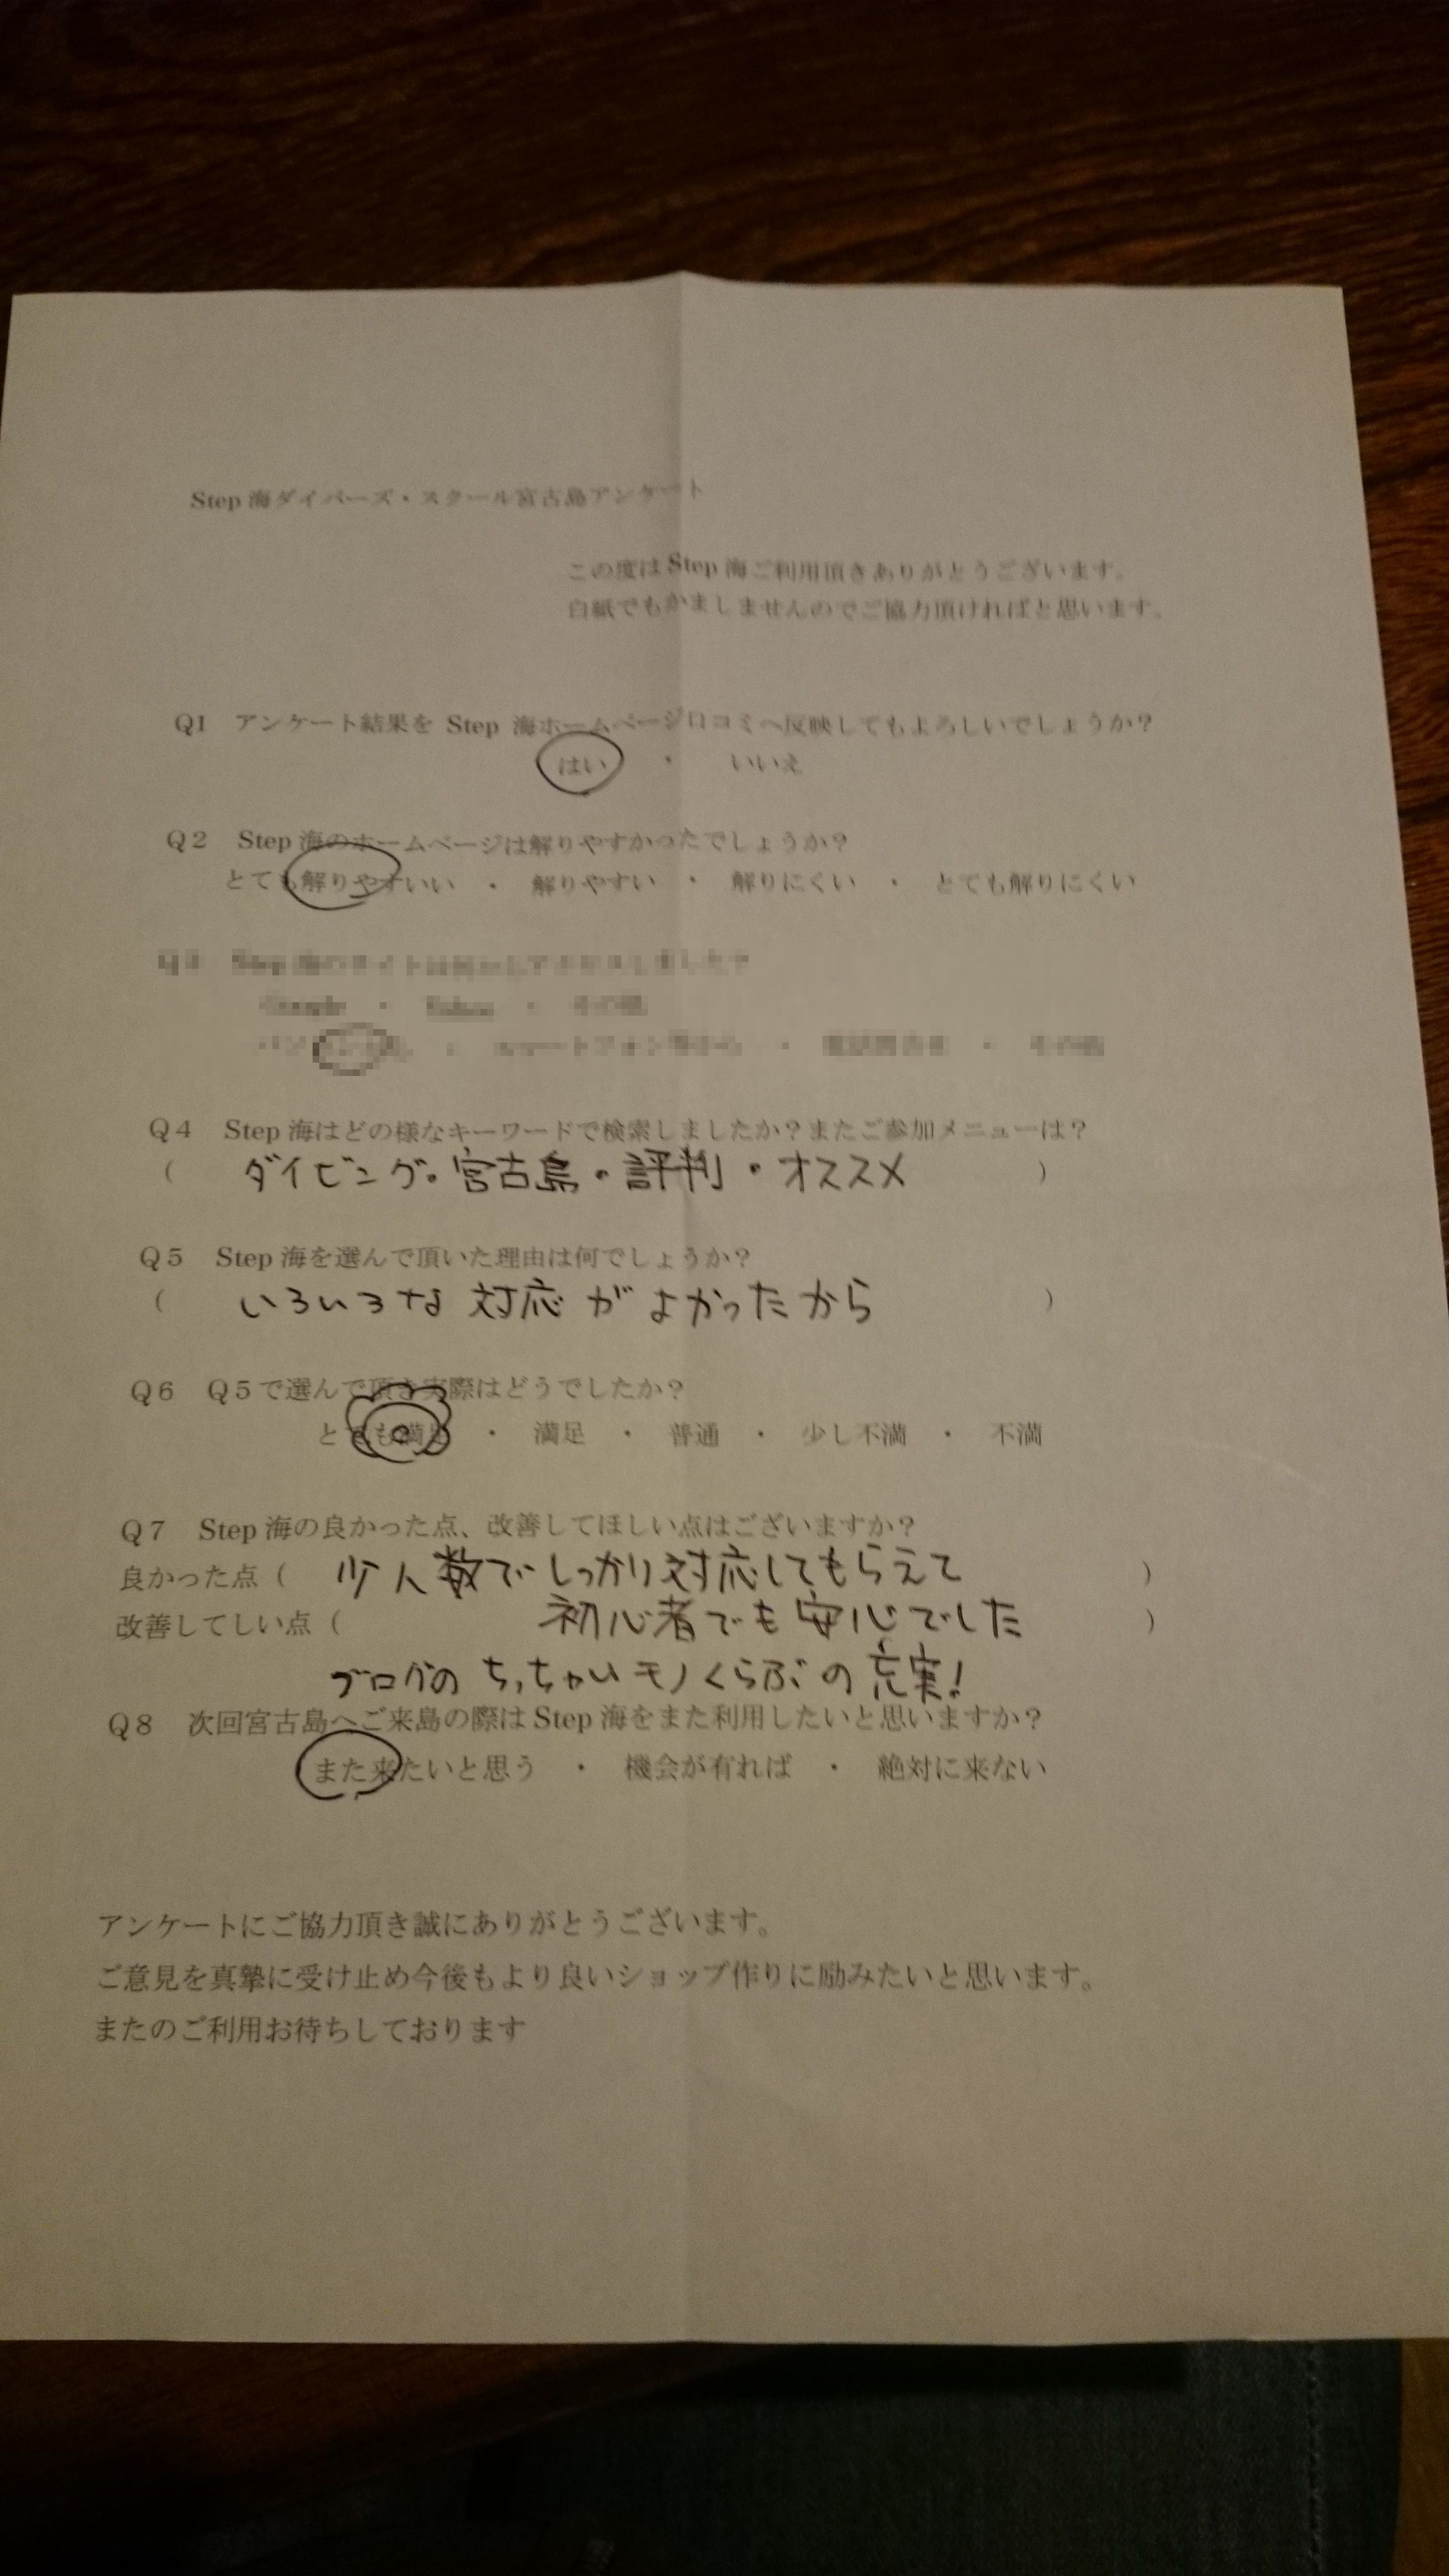 Step 海ダイバーズ・スクール宮古島アンケート
この度は Step 海ご利用頂きありがとうございます。
白紙でもかましませんのでご協力頂ければと思います。
Q1 アンケート結果を Step 海ホームページ口コミへ反映してもよろしいでしょうか？
はい ・ いいえ
Q2 Step 海のホームページは解りやすかったでしょうか？
とても解りやすいい ・ 解りやすい ・ 解りにくい ・ とても解りにくい
Q4 Step 海はどの様なキーワードで検索しましたか？またご参加メニューは？
( ダイビング・宮古島・評判・オススメ )
Q5 Step 海を選んで頂いた理由は何でしょうか？
( いろいろな対応がよかったから )
Q6 Q5で選んで頂き実際はどうでしたか？
とても満足 ・ 満足 ・ 普通 ・ 少し不満 ・ 不満
Q7 Step 海の良かった点、改善してほしい点はございますか？
良かった点 ( 少人数でしっかり対応してもらえて )
改善してしい点 ( 初心者でも安心でした )
ブログのちっちゃいモノくらぶの充実!
Q8 次回宮古島へご来島の際は Step 海をまた利用したいと思いますか？
また来たいと思う ・ 機会が有れば ・ 絶対に来ない
アンケートにご協力頂き誠にありがとうございます。
ご意見を真摯に受け止め今後もより良いショップ作りに励みたいと思います。
またのご利用お待ちしております